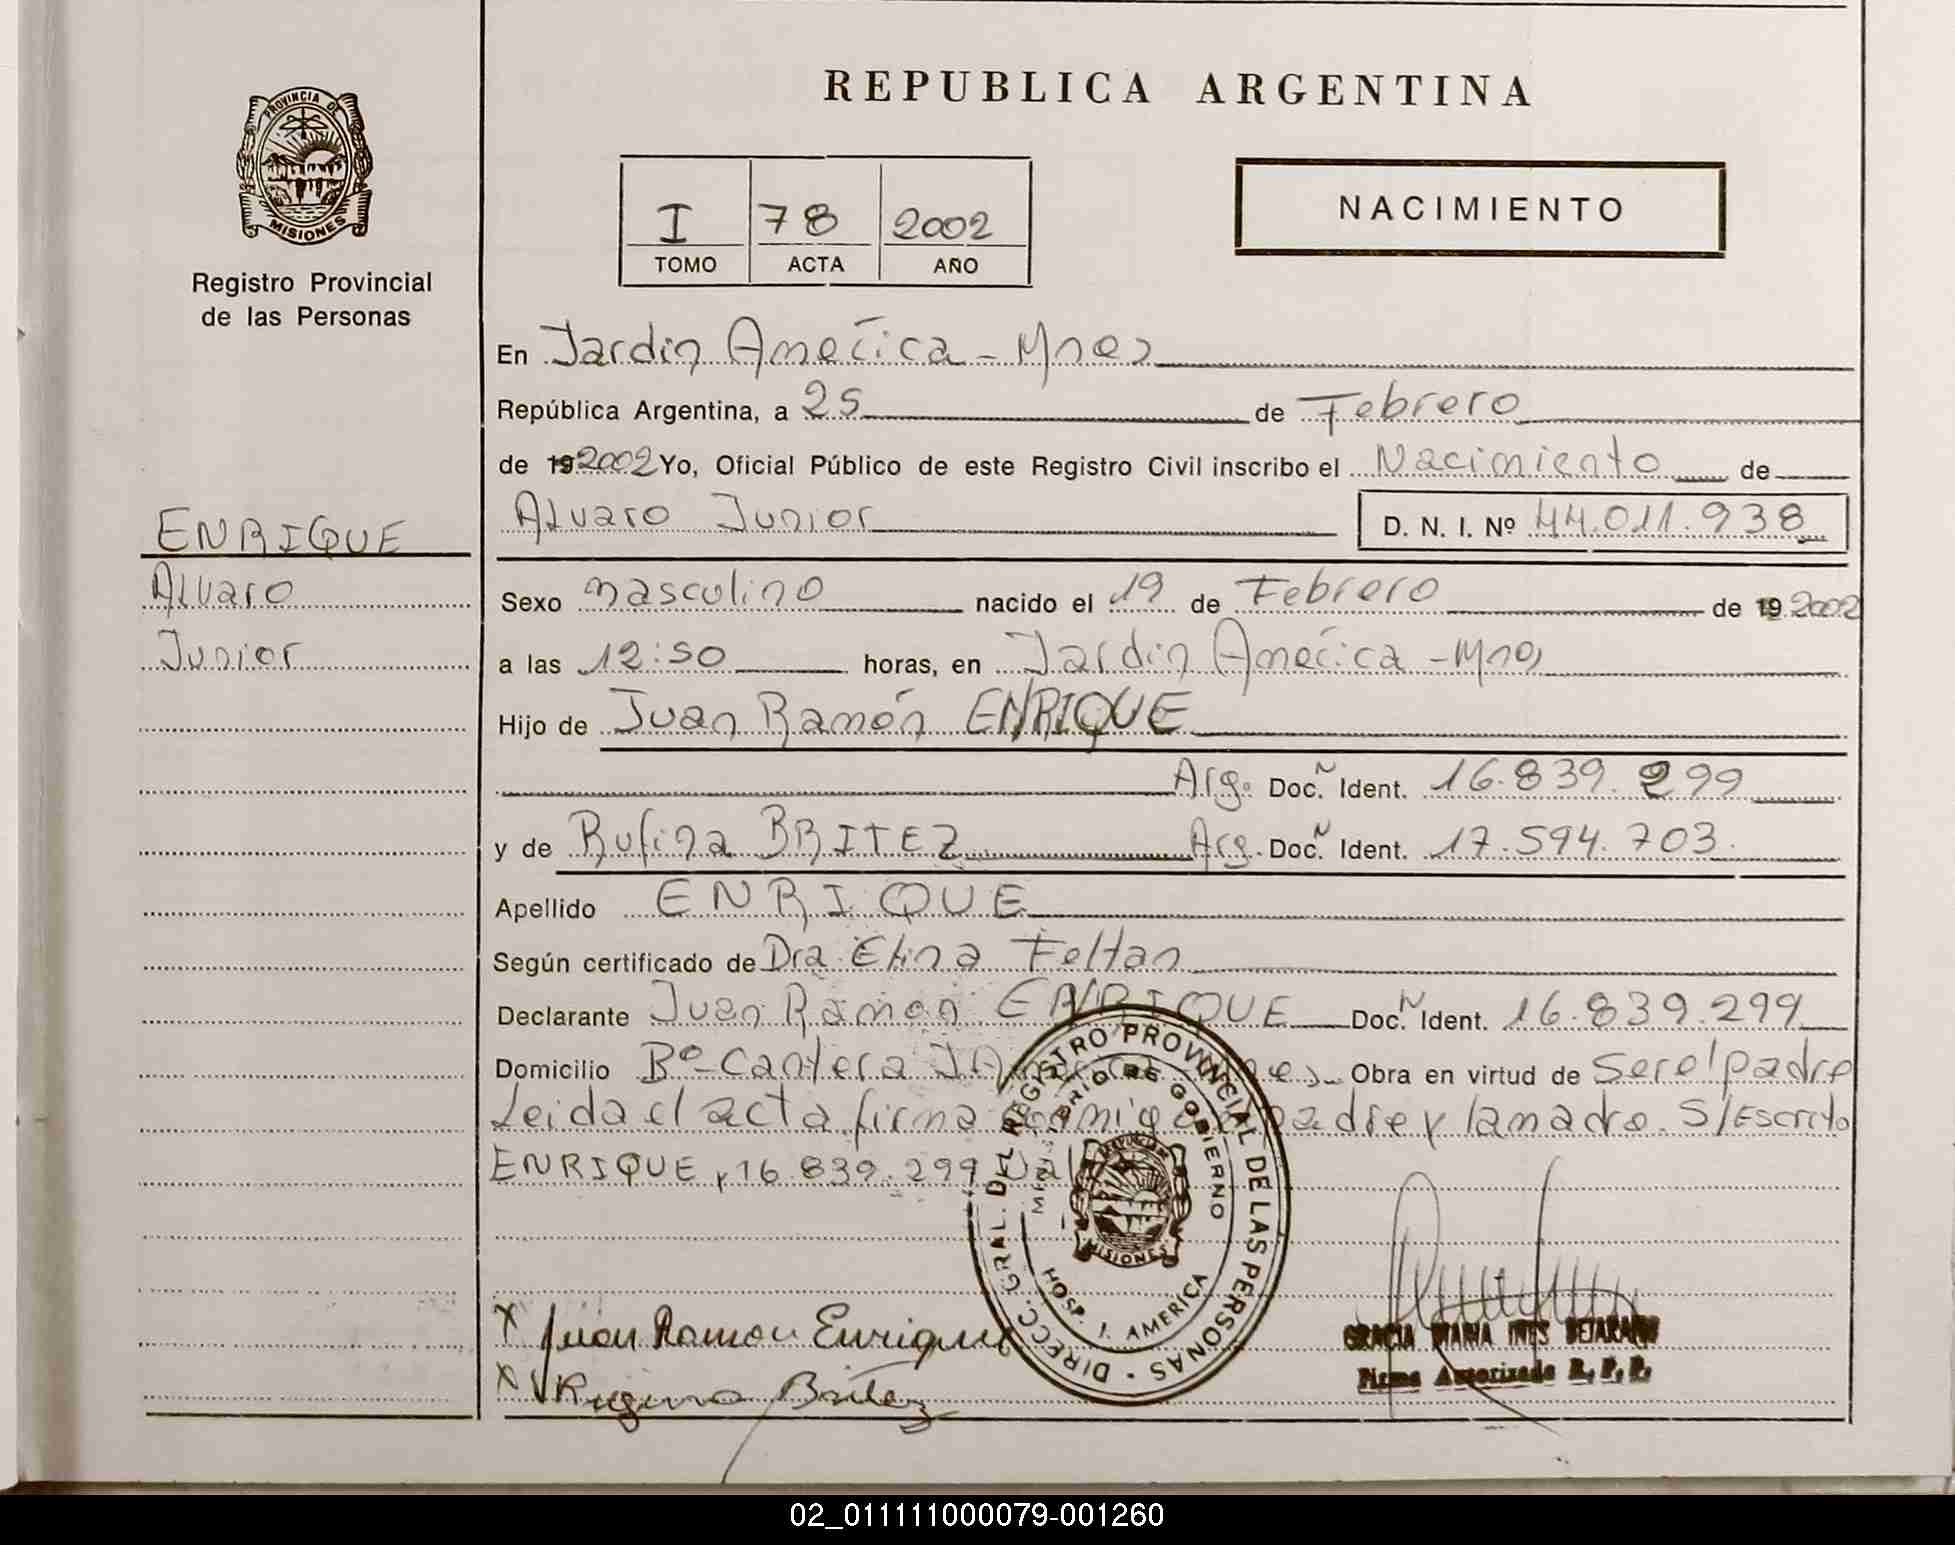 REPUBLICA ARGENTINA
PROVINCIA DE
MISIONES
Registro Provincial
de las Personas
I 78 2002
TOMO ACTA AÑO
NACIMIENTO
En Jardin América - Mnes
República Argentina, a 25 de Febrero
de 192002 Yo, Oficial Público de este Registro Civil inscribo el Nacimiento de
Alvaro Junior D. N. I. Nº 44.011.938
ENRIQUE
Alvaro
Junior
Sexo masculino nacido el 19 de Febrero de 19 2002
a las 12:50 horas, en Jardin América - Mnes
Hijo de Juan Ramón ENRIQUE
Arg. Doc. N Ident. 16.839.299
y de Rufina BRITEZ Arg. Doc. N Ident. 17.594.703.
Apellido ENRIQUE
Según certificado de Dra Elina Feltan
Declarante Juan Ramon ENRIQUE Doc. N Ident. 16.839.299
Domicilio Bº - Cantera Obra en virtud de Ser el padre
Leida el acta firma padre y la madre. S/Escrito
ENRIQUE, 16.839.299
DIRECC. GRAL. DEL REGISTRO PROVINCIAL DE LAS PERSONAS
MINISTERIO DE GOBIERNO
MISIONES
HOSP. J. AMERICA
X Juan Ramon Enrique
X Rufina Britez
GRACIA MARIA INES BEJARANO
Firma Autorizada R. P. P.
02_011111000079-001260